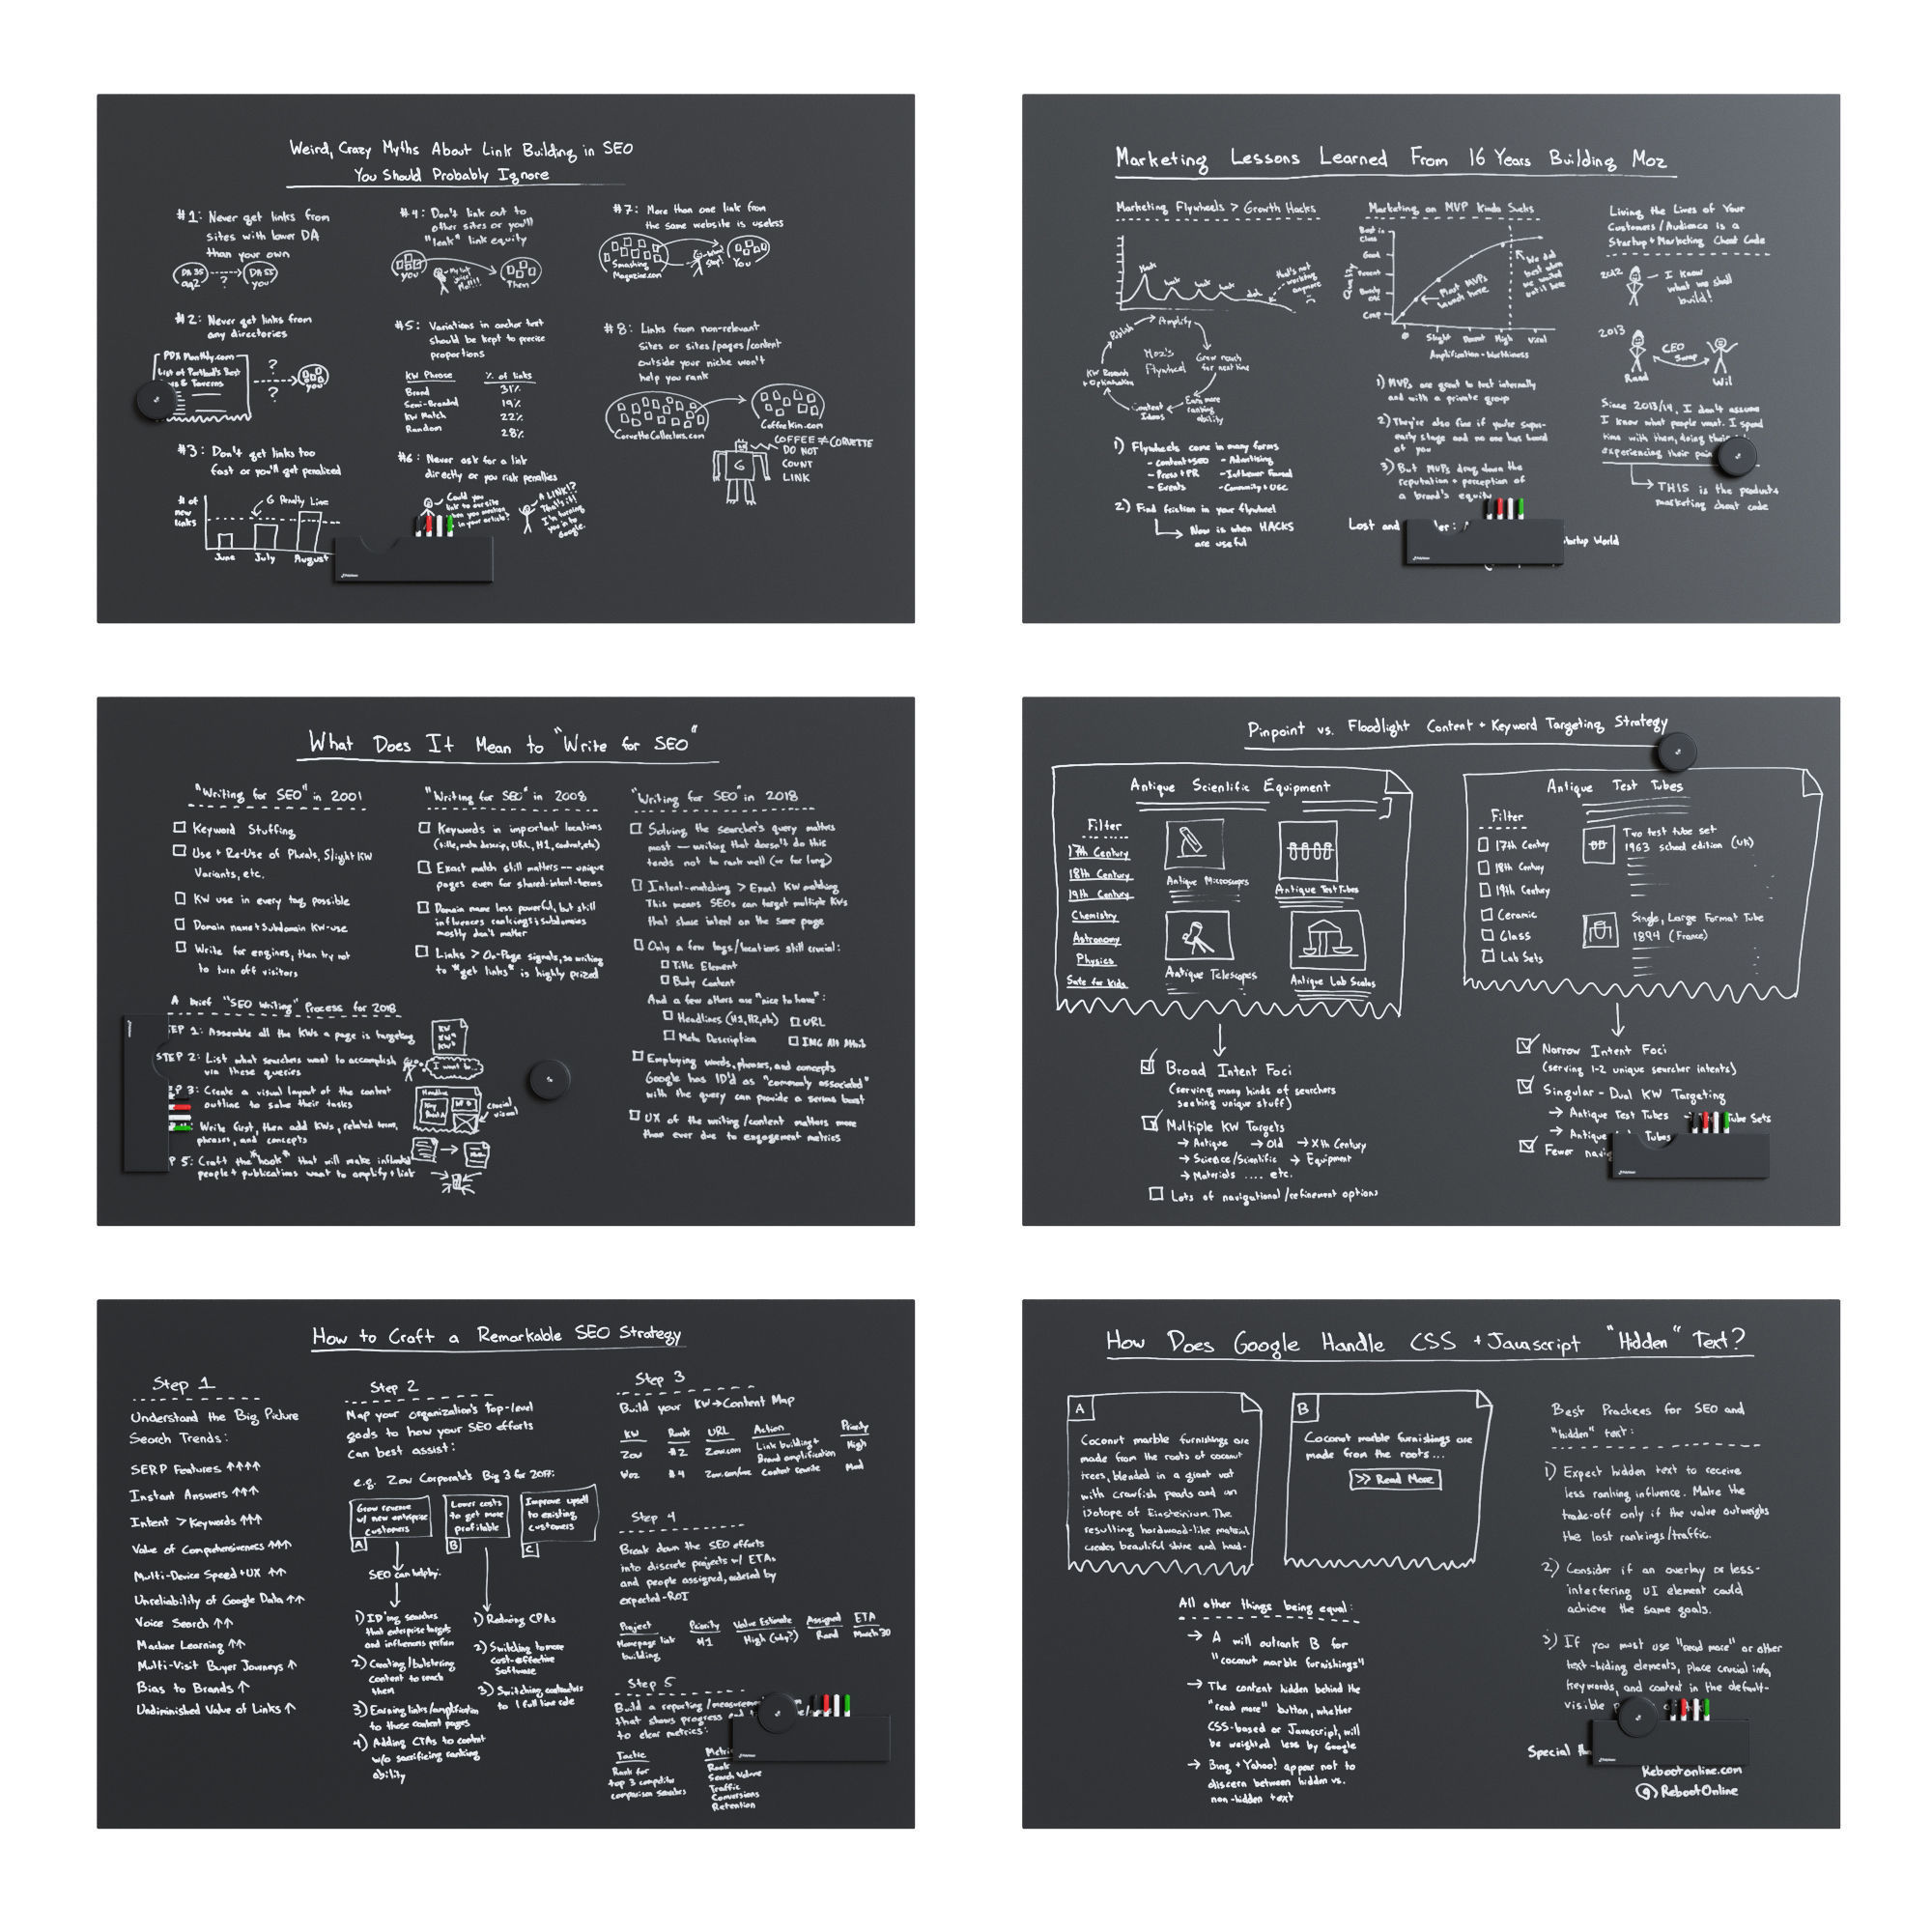 Weird, Crazy Myths About Link Building in SEO
You Should Probably Ignore
#1: Never get links from
sites with lower DA
than your own
DA 35
DA 55
you
?
#2: Never get links from
any directories
PDX Monthly.com
List of Portland's Best
& Taverns
?
?
you
#3: Don't get links too
fast or you'll get penalized
# of
new
links
G Penalty Line
June July August
#4: Don't link out to
other sites or you'll
"leak" link equity
you
Them
#5: Variations in anchor text
should be kept to precise
proportions
KW Phrase % of links
Brand 31%
Semi-Branded 19%
KW Match 22%
Random 28%
#6: Never ask for a link
directly or you risk penalties
Could you
link to our site
when you mention
in your article?
A LINK!?
That's it!
I'm turning
you in to
Google.
#7: More than one link from
the same website is useless
Smashing
Magazine.com
You
#8: Links from non-relevant
sites or sites/pages/content
outside your niche won't
help you rank
CorvetteCollectors.com
CoffeeKin.com
G
COFFEE ≠ CORVETTE
DO NOT
COUNT
LINK
Marketing Lessons Learned From 16 Years Building Moz
Marketing Flywheels > Growth Hacks
Hack
hack
hack
hack
that's not
working
anymore
Moz's
Flywheel
Publish
Amplify
Grow reach
for next time
Earn more
ranking
ability
Content
Ideas
KW Research
+ Optimization
1) Flywheels come in many forms
- Content+SEO - Advertising
- Press+PR - Influencer Focused
- Events - Community+UGC
2) Find friction in your flywheel
Now is when HACKS
are useful
Marketing an MVP Kinda Sucks
Quality
Best in
Class
Good
Decent
Barely
OK
Crap
Most MVPs
launch here
We did
best when
we waited
until here
0 Slight Decent High Viral
Amplification-Worthiness
1) MVPs are great to test internally
and with a private group
2) They're also fine if you're super-
early stage and no one has heard
of you
3) But MVPs drag down the
reputation + perception of
a brand's equity
Lost and
Startup World
Living the Lives of Your
Customers/Audience is a
Startup + Marketing Cheat Code
2012
I know
what we shall
build!
2013
CEO
Swap
Rand
Wil
Since 2013/14, I don't assume
I know what people want. I spend
time with them, doing their
experiencing their pain
THIS is the product+
marketing cheat code
What Does It Mean to "Write for SEO"
"Writing for SEO" in 2001
Keyword Stuffing
Use + Re-Use of Plurals, Slight KW
Variants, etc.
KW use in every tag possible
Domain name+Subdomain KW-use
Write for engines, then try not
to turn off visitors
"Writing for SEO" in 2008
Keywords in important locations
(title, meta descrip, URL, H1, content, etc)
Exact match still matters -- unique
pages even for shared-intent-terms
Domain name less powerful, but still
influences rankings; subdomains
mostly don't matter
Links > On-Page signals, so writing
to *get links* is highly prized
"Writing for SEO" in 2018
Solving the searcher's query matters
most — writing that doesn't do this
tends not to rank well (or for long)
Intent-matching > Exact KW matching
This means SEOs can target multiple KWs
that share intent on the same page
Only a few tags/locations still crucial:
Title Element
Body Content
And a few others are "nice to have":
Headlines (H1, H2, etc) URL
Meta Description IMG Alt Attr.s
Employing words, phrases, and concepts
Google has ID'd as "commonly associated"
with the query can provide a serious boost
UX of the writing/content matters more
than ever due to engagement metrics
A brief "SEO Writing" Process for 2018
STEP 1: Assemble all the KWs a page is targeting
KW
STEP 2: List what searchers want to accomplish
via these queries
I want to...
P 3: Create a visual layout of the content
outline to solve their tasks
Headline
Crucial
visual
Write first, then add KWs, related terms,
phrases, and concepts
P 5: Craft the *hook* that will make influential
people + publications want to amplify + link
Pinpoint vs. Floodlight Content + Keyword Targeting Strategy
Antique Scientific Equipment
Filter
17th Century
18th Century
19th Century
Chemistry
Astronomy
Physics
Safe for Kids
Antique Microscopes
Antique Test Tubes
Antique Telescopes
Antique Lab Scales
Broad Intent Foci
(serving many kinds of searchers
seeking unique stuff)
Multiple KW Targets
→ Antique → Old → Xth Century
→ Science/Scientific → Equipment
→ Materials .... etc.
Lots of navigational/refinement options
Antique Test Tubes
Filter
17th Century
18th Century
19th Century
Ceramic
Glass
Lab Sets
Two test tube set
1963 school edition (UK)
Single, Large Format Tube
1894 (France)
Narrow Intent Foci
(serving 1-2 unique searcher intents)
Singular - Dual KW Targeting
→ Antique Test Tubes Tube Sets
→ Antique Tubes
Fewer
How to Craft a Remarkable SEO Strategy
Step 1
Understand the Big Picture
Search Trends:
SERP Features ↑↑↑↑
Instant Answers ↑↑↑
Intent > Keywords ↑↑↑
Value of Comprehensiveness ↑↑↑
Multi-Device Speed + UX ↑↑
Unreliability of Google Data ↑↑
Voice Search ↑↑
Machine Learning ↑↑
Multi-Visit Buyer Journeys ↑
Bias to Brands ↑
Undiminished Value of Links ↑
Step 2
Map your organization's top-level
goals to how your SEO efforts
can best assist:
e.g. Zow Corporate's Big 3 for 2017:
Grow revenue
w/ new enterprise
customers
A
Lower costs
to get more
profitable
B
Improve upsell
to existing
customers
C
SEO can help by:
1) ID'ing searches
that enterprise targets
and influencers perform
2) Creating/bolstering
content to reach
them
3) Earning links/amplification
to those content pages
4) Adding CTAs to content
w/o sacrificing ranking
ability
1) Reducing CPAs
2) Switching to more
cost-effective
software
3) Switching contractors
to 1 full time role
Step 3
Build your KW→Content Map
KW Rank URL Action Priority
Zow #2 Zow.com Link building + Brand amplification High
Woz #4 Content rewrite Med
Step 4
Break down the SEO efforts
into discrete projects w/ ETAs
and people assigned, ordered by
expected-ROI
Project Priority Value Estimate Assigned ETA
Homepage link building #1 High (why?) Rand March 30
Step 5
Build a reporting/measurement
that shows progress and
to clear metrics:
Tactic
Rank for
top 3 competitor
comparison searches
Metric
Rank
Search Volume
Traffic
Conversions
Retention
How Does Google Handle CSS + Javascript "Hidden" Text?
A
Coconut marble furnishings are
made from the roots of coconut
trees, blended in a giant vat
with crawfish pearls and an
isotope of Einsteinium. The
resulting hardwood-like material
creates beautiful shine and hard-
B
Coconut marble furnishings are
made from the roots...
>> Read More
All other things being equal:
→ A will outrank B for
"coconut marble furnishings"
→ The content hidden behind the
"read more" button, whether
CSS-based or Javascript, will
be weighted less by Google
→ Bing + Yahoo! appear not to
discern between hidden vs.
non-hidden text
Best Practices for SEO and
"hidden" text:
1) Expect hidden text to receive
less ranking influence. Make the
trade-off only if the value outweighs
the lost rankings/traffic.
2) Consider if an overlay or less-
interfering UI element could
achieve the same goals.
3) If you must use "read more" or other
text-hiding elements, place crucial info,
keywords, and content in the default-
visible
Special
Rebootonline.com
@RebootOnline